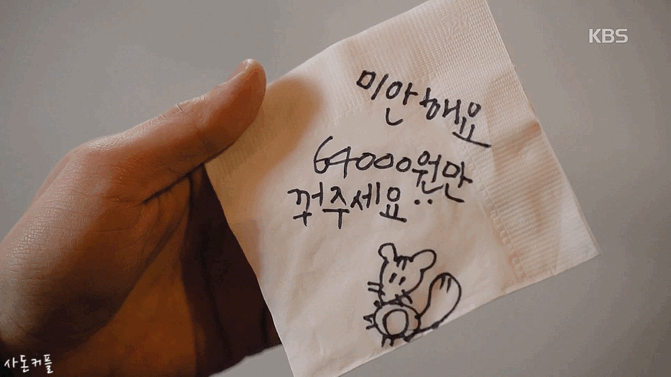 KBS
미안해요
64000원만
꺼주세요..
사돈커플